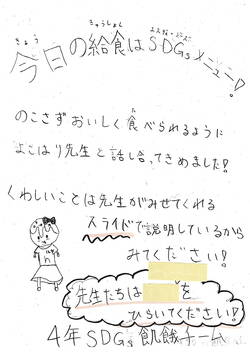 きょう きゅうしょく えすでぃーじーず
今日の給食はSDGsメニュー!
のこさずおいしく食べられるように
よこはり先生と話し合ってきめました!
くわしいことは先生がみせてくれる
スライドで説明しているから
みてください!
先生たちは を
ひらいてください!
4年SDGs飢餓チーム